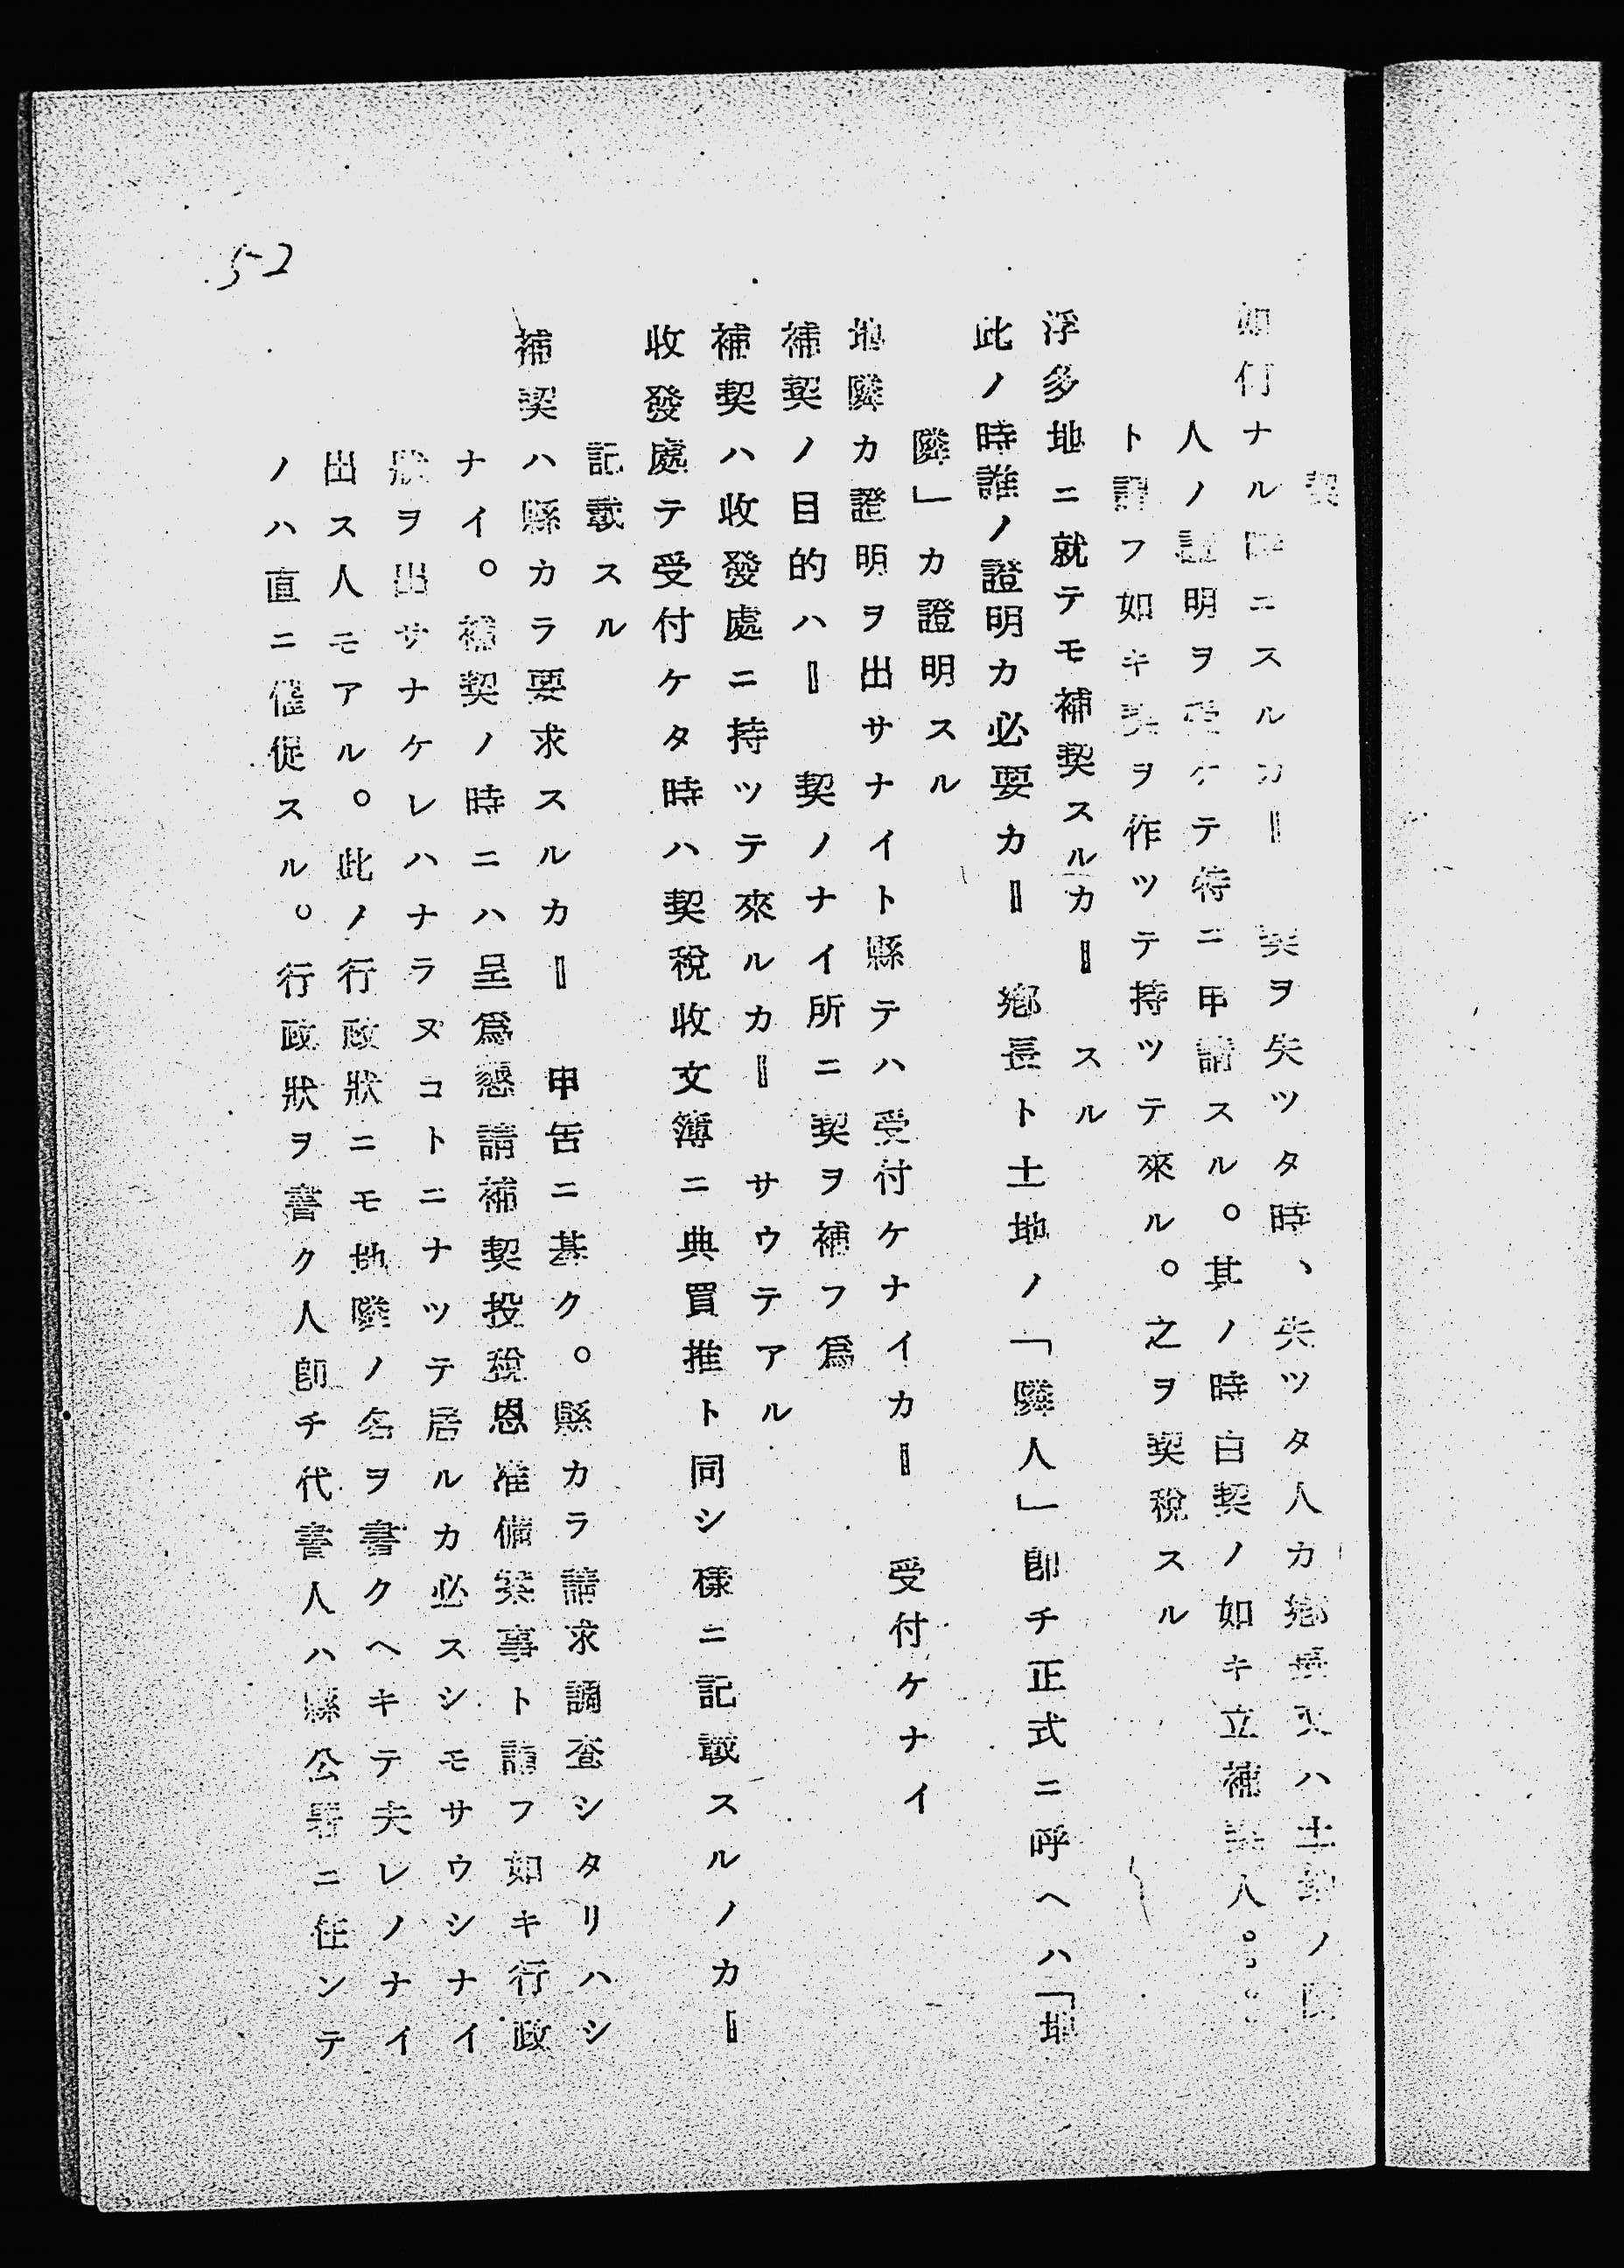 契
如何ナル時ニスルカ=　契ヲ失ツタ時、失ツタ人カ鄕長又ハ土地ノ隣
人ノ證明ヲ受ケテ特ニ申請スル。其ノ時白契ノ如キ立補契人。。。
ト謂フ如キ契ヲ作ツテ持ツテ來ル。之ヲ契稅スル
浮多地ニ就テモ補契スルカ=　スル
此ノ時誰ノ證明カ必要カ=　鄕長ト土地ノ「隣人」卽チ正式ニ呼ヘハ「地
隣」カ證明スル
地隣カ證明ヲ出サナイト縣テハ受付ケナイカ=　受付ケナイ
補契ノ目的ハ=　契ノナイ所ニ契ヲ補フ爲
補契ハ收發處ニ持ツテ來ルカ=　サウテアル
收發處テ受付ケタ時ハ契稅收文簿ニ典買推ト同シ樣ニ記載スルノカ=
記載スル
補契ハ縣カラ要求スルカ=　申吿ニ基ク。縣カラ請求調查シタリハシ
ナイ。補契ノ時ニハ呈爲懇請補契投稅恩准備案事ト謂フ如キ行政
狀ヲ出サナケレハナラヌコトニナツテ居ルカ必スシモサウシナイ
出ス人モアル。此ノ行政狀ニモ地隣ノ名ヲ書クヘキテ夫レノナイ
ノハ直ニ催促スル。行政狀ヲ書ク人卽チ代書人ハ縣公署ニ住ンテ
52